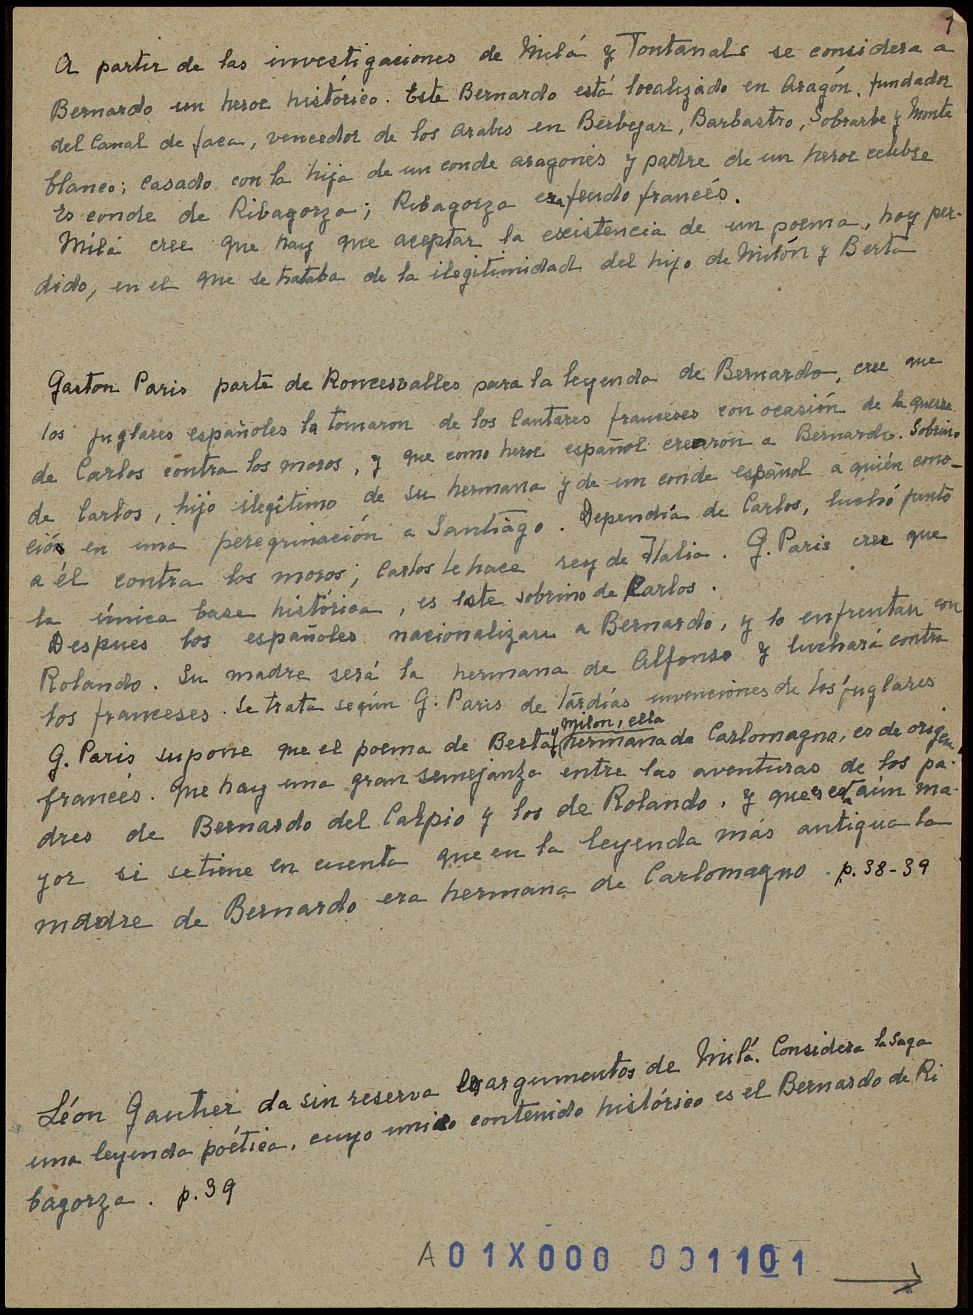 1
A partir de las investigaciones de Milá y Fontanals se considera a
Bernardo un heroe histórico. Este Bernardo está localizado en Aragón, fundador
del Canal de Jaca, vencedor de los arabes en Berbejar, Barbastro, Sobrarbe y Monte
blanco; casado con la hija de un conde aragonés y padre de un heroe celebre
Es conde de Ribagorza; Ribagorza era feudo francés.
Milá cree que hay que aceptar la existencia de un poema, hoy per-
dido, en el que se trataba de la ilegitimidad del hijo de Milón y Berta
Gaston Paris parte de Roncesvalles para la leyenda de Bernardo, cree que
los juglares españoles la tomaron de los Cantares franceses con ocasión de la guerra
de Carlos contra los moros, y que como heroe español crearon a Bernardo. Sobrino
de Carlos, hijo ilegítimo de su hermana y de un conde español a quién cono-
ció en una peregrinación a Santiago. Dependía de Carlos, luchó junto
a él contra los moros; Carlos le hace rey de Italia. G. Paris cree que
la única base histórica, es este sobrino de Carlos.
Despues los españoles nacionalizan a Bernardo, y lo enfrentan con
Rolando. Su madre será la hermana de Alfonso y luchará contra
los franceses. Se trata según G. Paris de tardías invenciones de los juglares
G. Paris supone que el poema de Berta y Milon, ella hermana de Carlomagno, es de origen
francés. Que hay una gran semejanza entre las aventuras de los pa-
dres de Bernardo del Carpio y los de Rolando, y que esta aún ma-
yor si se tiene en cuenta que en la leyenda más antigua la
madre de Bernardo era hermana de Carlomagno. p. 38-39
Léon Gautier da sin reserva los argumentos de Milá. Considera la Saga
una leyenda poética, cuyo unico contenido histórico es el Bernardo de Ri
bagorza. p. 39
A01X000 001101